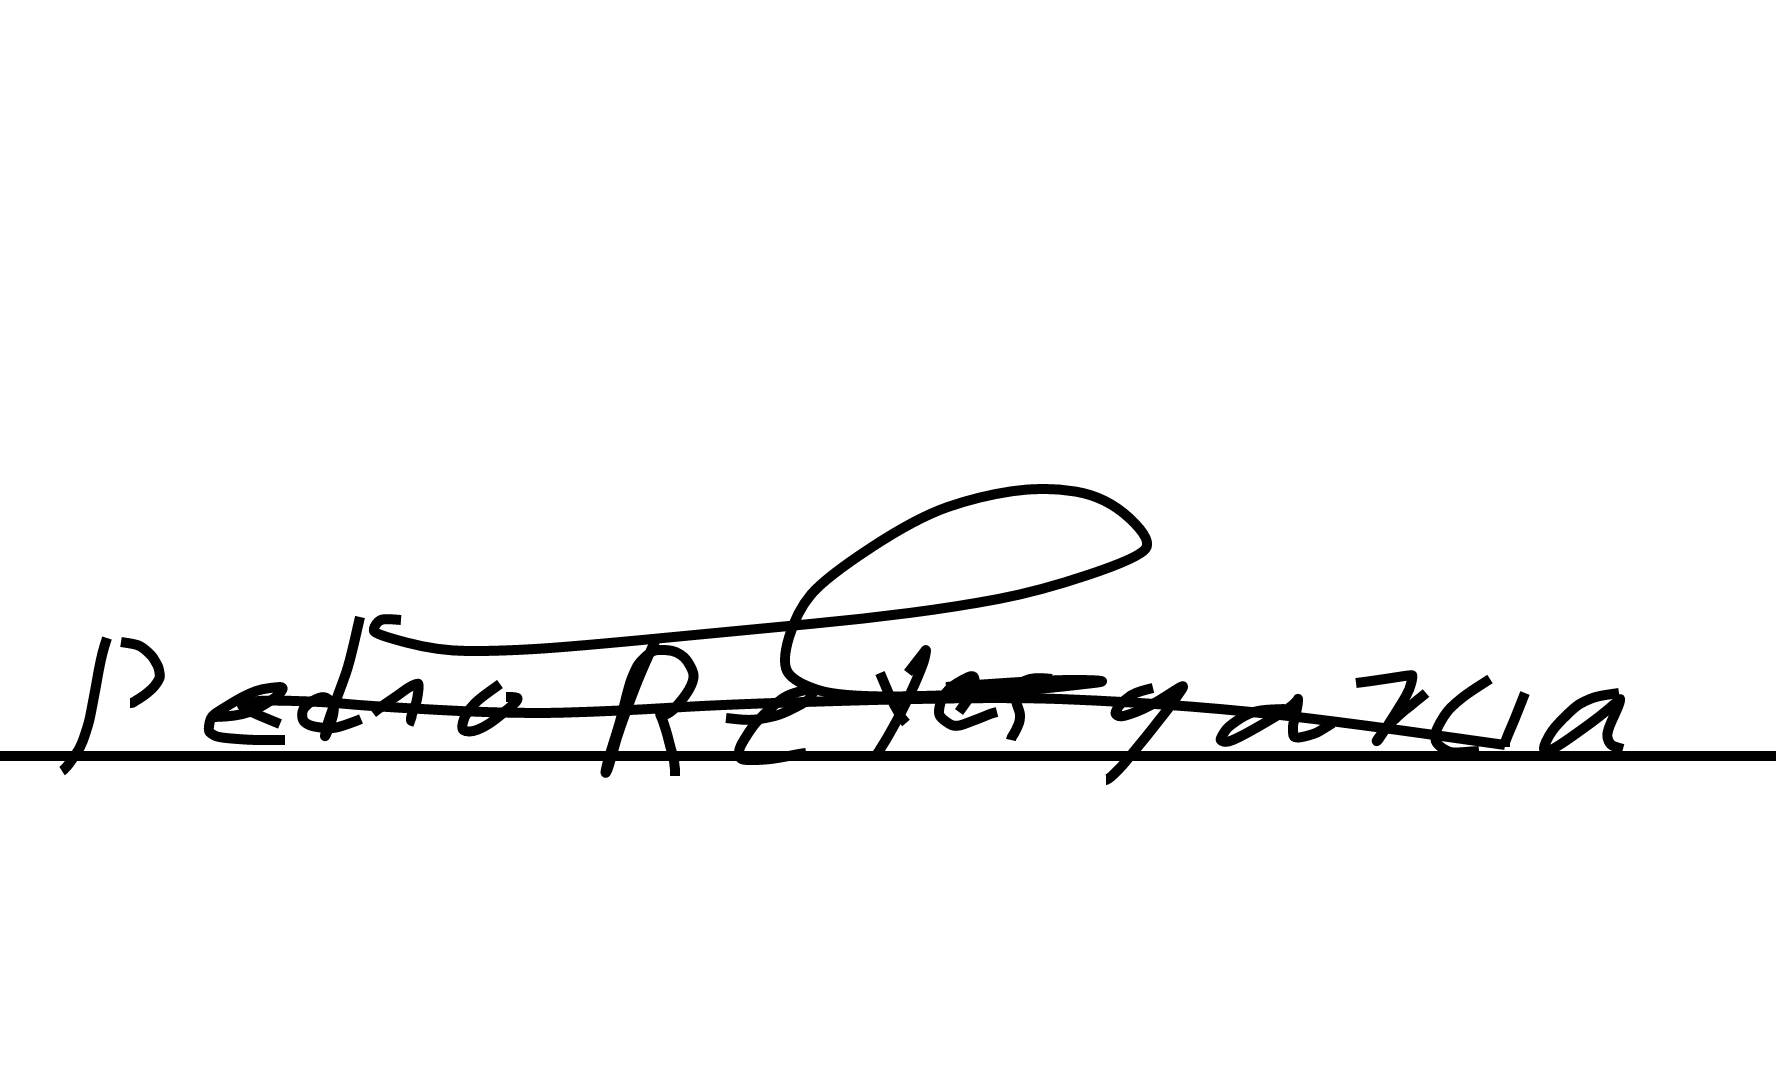 Pedro Reyes garcia